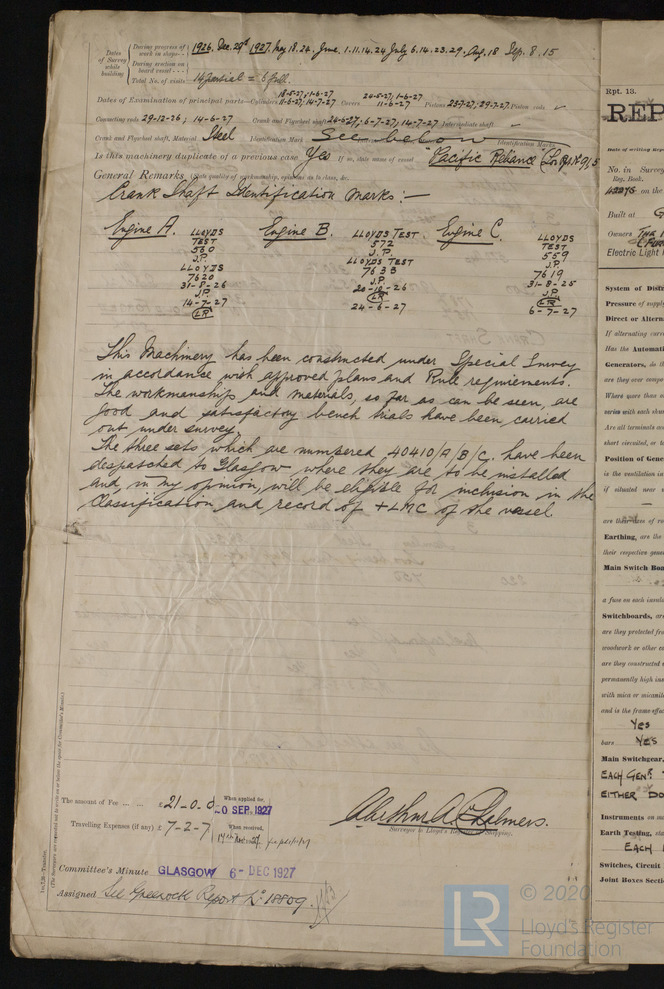 Dates of Survey while building
During progress of work in shops - - 1926. Dec. 29th 1927. May 18.24. June. 1.11.14.24 July 6.14.23.29. Aug. 18 Sep. 8.15
During erection on board vessel - - -
Total No. of visits 14 partial = 5 full.
Dates of Examination of principal parts—Cylinders 18-5-27; 1-6-27 11-6-27; 14-7-27 Covers 24-5-27; 1-6-27 11-6-27 Pistons 23-7-27; 29-7-27. Piston rods ✓
Connecting rods 29-12-26; 14-6-27 Crank and Flywheel shaft 24-6-27; 6-7-27; 14-7-27 Intermediate shaft
Crank and Flywheel shaft, Material Steel Identification Mark See below Identification Marks
Is this machinery duplicate of a previous case Yes If so, state name of vessel Pacific Reliance
General Remarks (State quality of workmanship, opinions as to class, &c.
Crank Shaft Identification Marks :—
Engine A. Engine B. Engine C.
LLOYDS TEST 560 J.P. LLOYDS 7620 31-8-26 J.P. 14-7-27 LR
LLOYDS TEST 572 J.P. LLOYDS TEST 7633 J.P. 20-10-26 LR 24-6-27
LLOYDS TEST 559 J.P. LLOYDS 7619 31-8-25 J.P. LR 6-7-27
This Machinery has been constructed under Special Survey
in accordance with approved plans and Rule requirements.
The workmanship and materials, so far as can be seen, are
good and satisfactory bench trials have been carried
out under survey.
The three sets which are numbered 40410/A/B/C. have been
despatched to Glasgow where they are to be installed
and, in my opinion, will be eligible for inclusion in the
Classification and record of +LMC of the vessel
The amount of Fee ... ... £ 21-0-0 When applied for, 20 SEP. 1927
Travelling Expenses (if any) £ 7-2-7 When received,
Arthur A. Chalmers.
Surveyor to Lloyd's Register of Shipping.
Committee's Minute GLASGOW 6 - DEC 1927
Assigned See Greenock Report No. 18809.
Rpt. 13.
REP
No. in Survey
Reg. Book.
on the
Built at
Owners
Electric Light
System of Dist
Pressure of supply
Direct or Altern
If alternating curre
Has the Automati
Generators, do th
are they over compe
Where more than o
series with each shun
Are all terminals ac
short circuited, or t
Position of Gene
is the ventilation in
if situated near
are their axes of ro
Earthing, are the
their respective gener
Main Switch Boa
a fuse on each insula
Switchboards, are
are they protected fr
woodwork or other co
are they constructed
permanently high ins
with mica or micanite
and is the frame effec
YES
bars YES
Main Switchgear,
EACH GENR.
EITHER DO
Instruments on ma
Earth Testing, sta
EACH
Switches, Circuit
Joint Boxes Secti
LR
© 2020
Lloyd's Register
Foundation